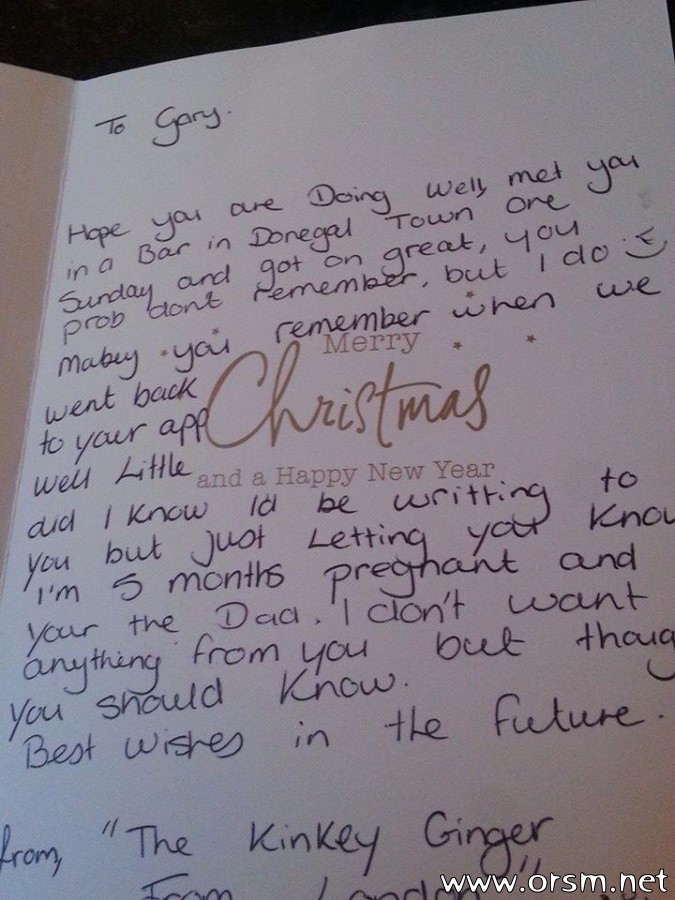 To Gary.
Hope you are Doing Well, met you
in a Bar in Donegal Town one
Sunday and got on great, you
prob don't remember, but I do :)
mabey you remember when we
Merry
went back
Christmas
to your app
and a Happy New Year
Well Little
did I know Id be writting to
you but just Letting you know
I'm 5 months pregnant and
your the Dad. I don't want
anything from you but thoug
you should know.
Best wishes in the future.
from, "The Kinkey Ginger
From London"
www.orsm.net